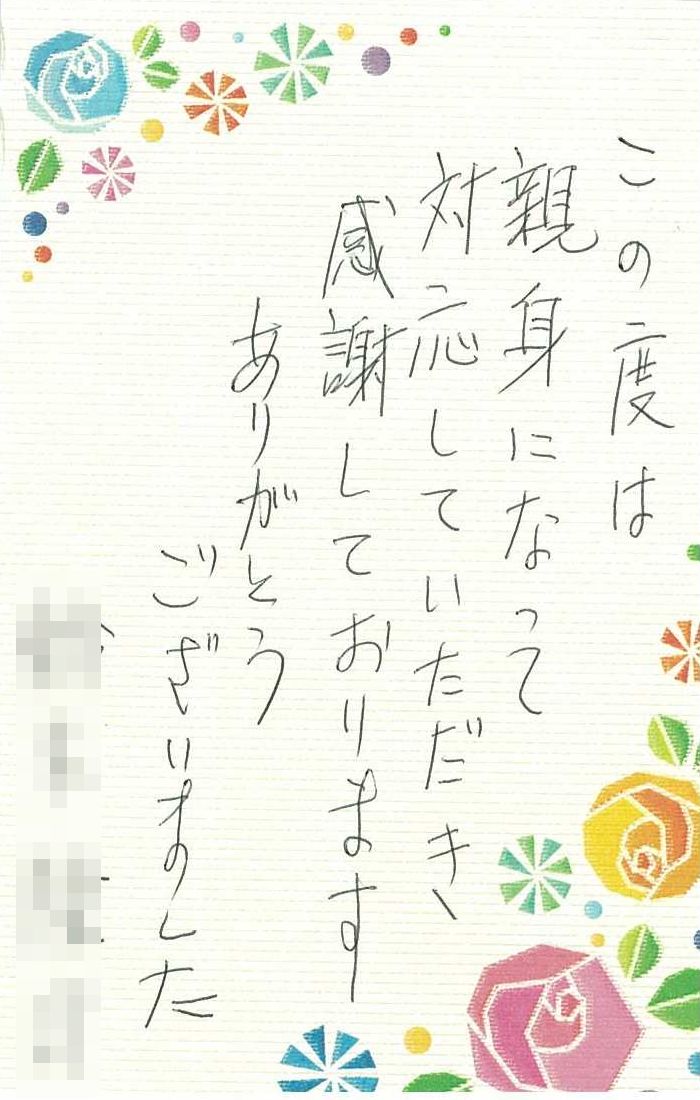 この度は
親身になって
対応していただき、
感謝しております
ありがとう
ございました